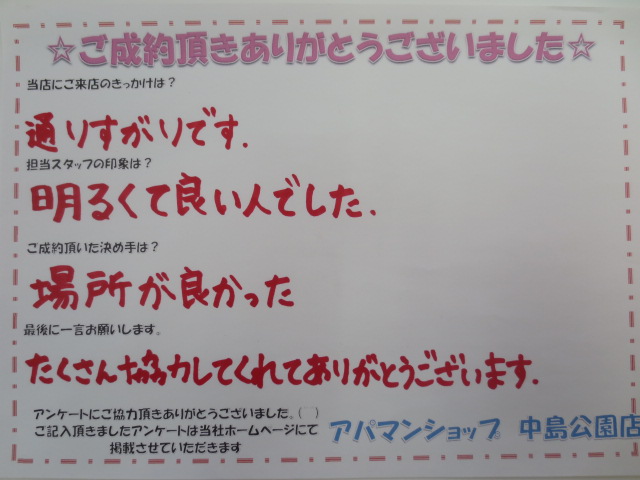 ☆ご成約頂きありがとうございました☆
当店にご来店のきっかけは？
通りすがりです.
担当スタッフの印象は？
明るくて良い人でした.
ご成約頂いた決め手は？
場所が良かった
最後に一言お願いします。
たくさん協力してくれてありがとうございます.
アンケートにご協力頂きありがとうございました。(　)
ご記入頂きましたアンケートは当社ホームページにて
掲載させていただきます
アパマンショップ 中島公園店